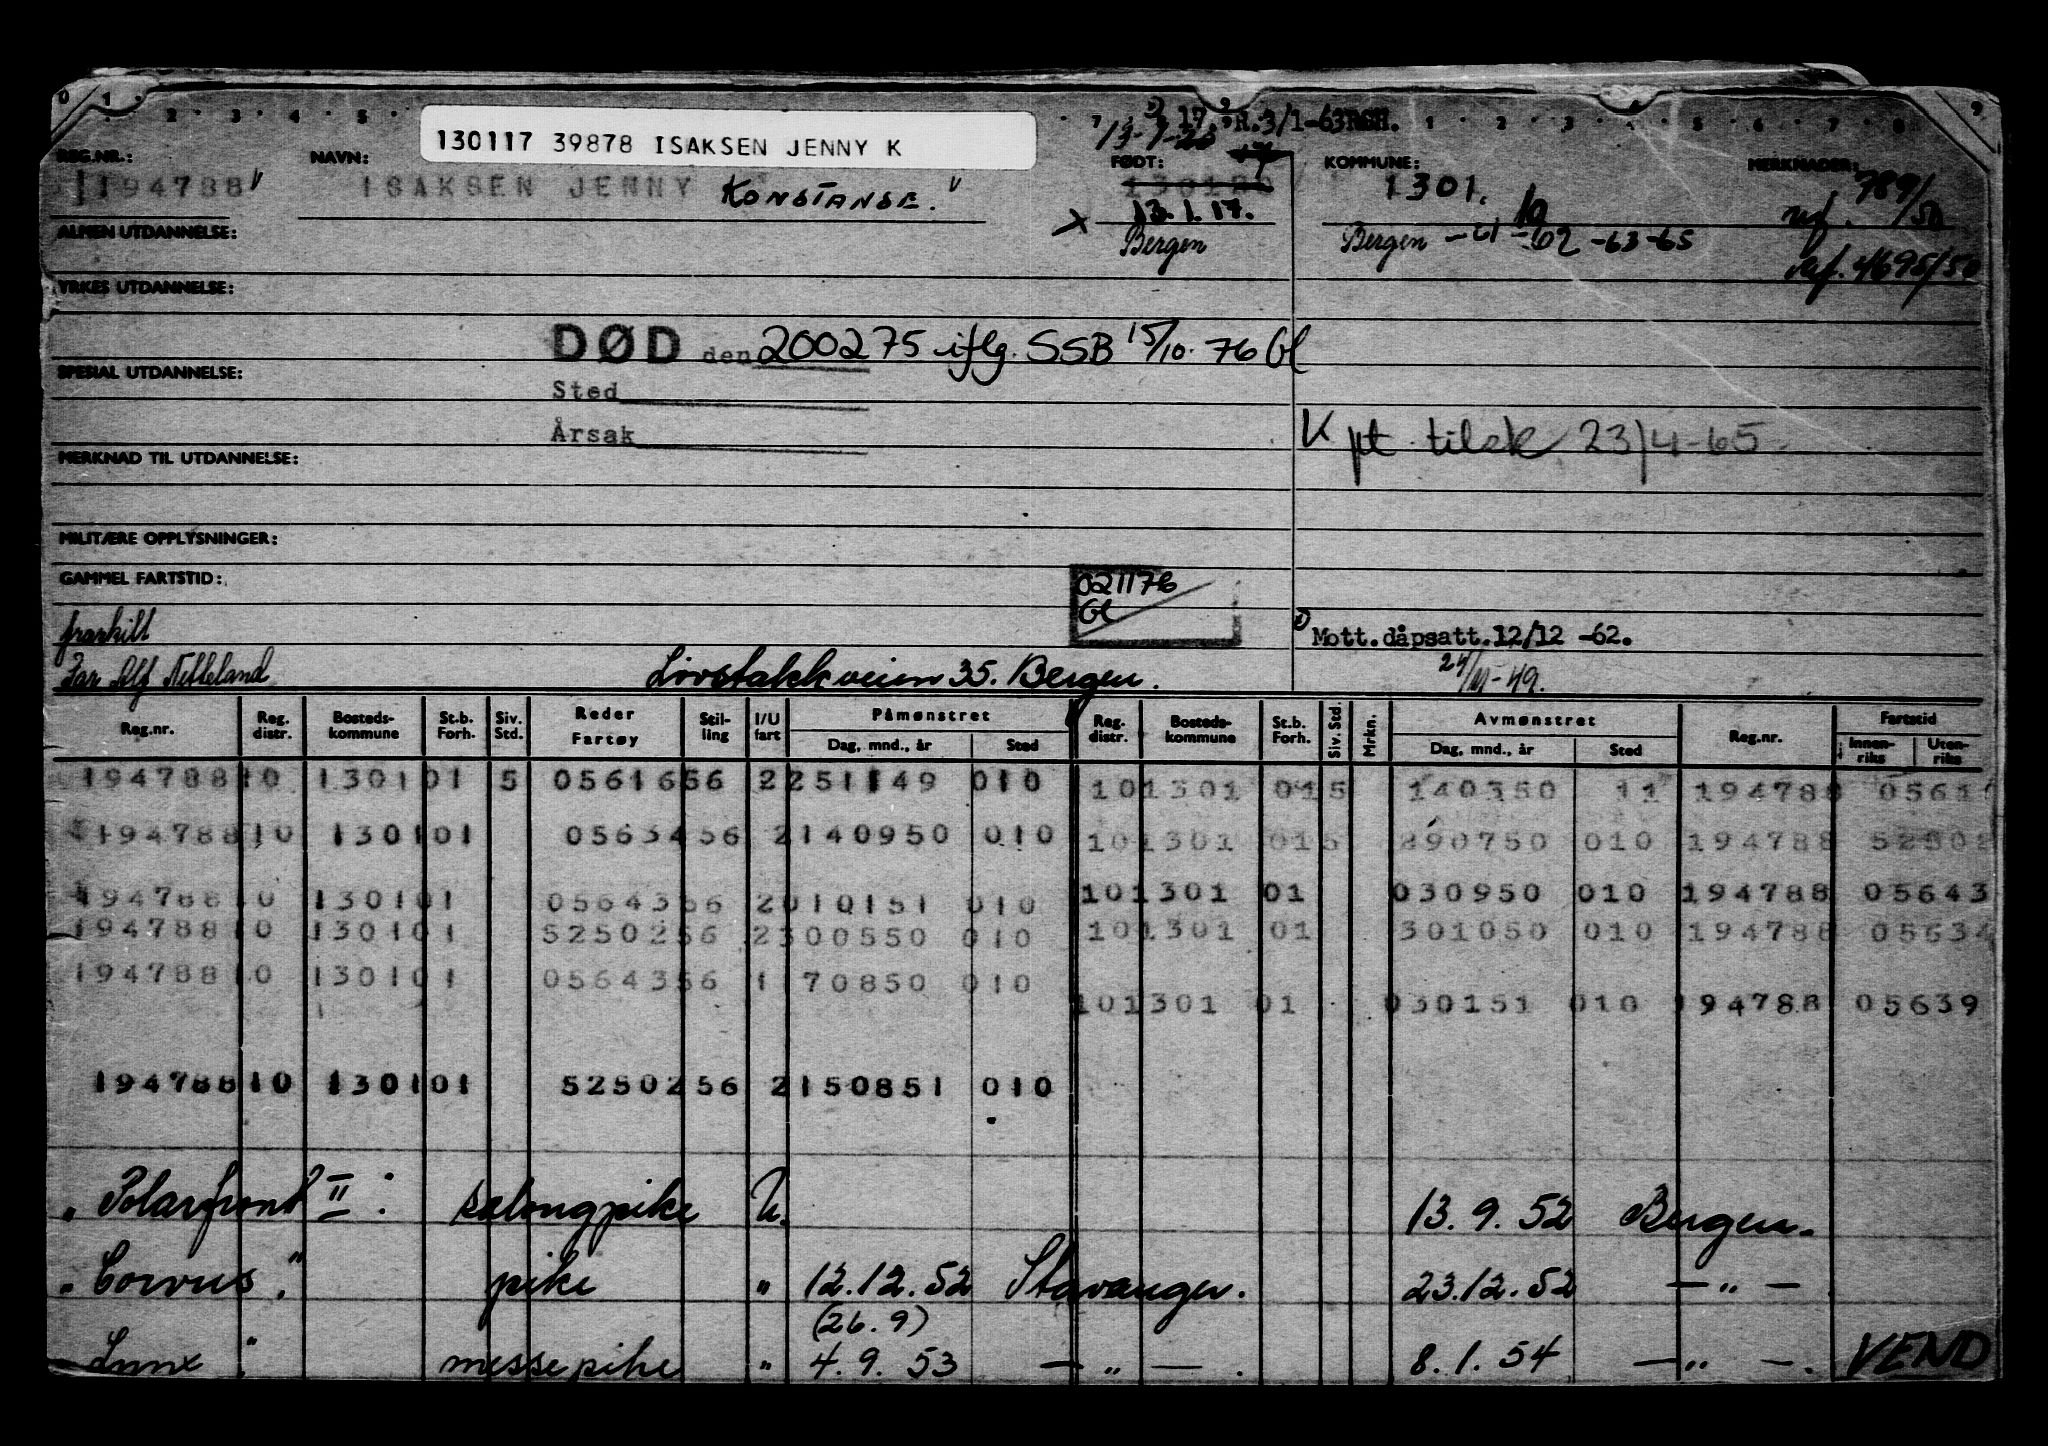 130117 39878 ISAKSEN JENNY K
R.3/1-63RGH.
REG.NR.: NAVN: FØDT: KOMMUNE: MERKNADER:
194788" ISAKSEN JENNY KONSTANSE." 1301. 789/50
13.1.17.
ALMEN UTDANNELSE: Bergen Bergen -61 -62 -63 -65
ref. 4695/50
YRKES UTDANNELSE:
DØD den 200275 iflg. SSB 15/10. 76 Gl
SPESIAL UTDANNELSE:
Sted
Årsak K pt tilsk 23/4-65.
MERKNAD TIL UTDANNELSE:
MILITÆRE OPPLYSNINGER:
GAMMEL FARTSTID: 021176
Gl
fraskilt Mott.dåpsatt.12/12 -62.
Far Alf Netteland Løvstakkveien 35. Bergen.
Reg.nr. Reg. distr. Bosteds-kommune St.b. Forh. Siv. Std. Reder Fartøy Stil-ling I/U fart Påmønstret Dag, mnd., år Sted Reg. distr. Bosteds-kommune St.b. Forh. Siv. Std. Mrkn. Avmønstret Dag, mnd., år Sted Reg.nr. Fartstid Innen-riks Uten-riks
194788 10 1301 01 5 05616 56 2 251149 010 10 1301 01 5 140350 11 194788 0561
194788 10 1301 01 05634 56 2 140950 010 10 1301 01 5 290750 010 194788 52502
194788 10 1301 01 05643 56 2 010151 010 10 1301 01 030950 010 194788 05643
194788 10 1301 01 52502 56 2 300550 010 10 1301 01 301050 010 194788 05634
194788 10 1301 01 05643 56 1 70850 010
10 1301 01 030151 010 194788 05639
194788 10 1301 01 52502 56 2 150851 010
"Polarfront II": salongpike U. 13.9.52 Bergen.
"Corvus". pike " 12.12.52 Stavanger. 23.12.52 — " —
(26.9)
Lynx " messepike " 4.9.53 — " — . 8.1.54 — " — . VEND